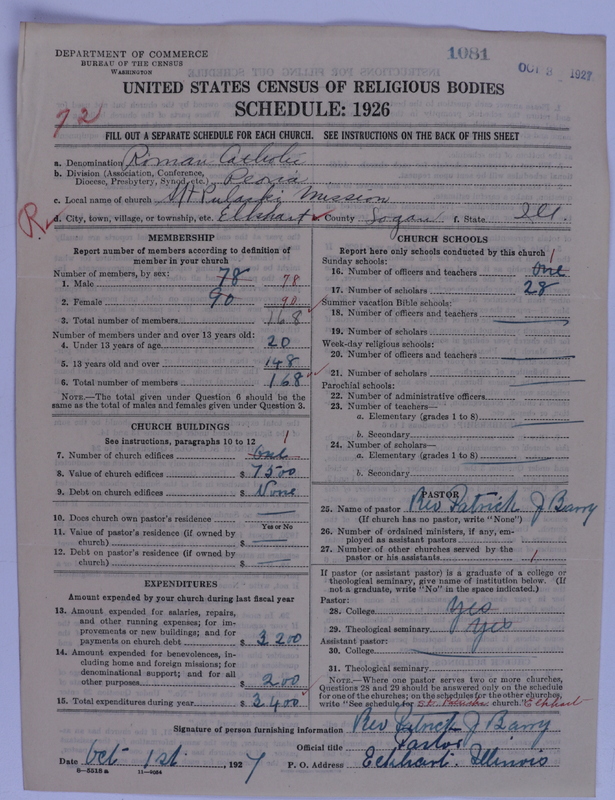 1081
OCT 3 1927
DEPARTMENT OF COMMERCE
BUREAU OF THE CENSUS
WASHINGTON
UNITED STATES CENSUS OF RELIGIOUS BODIES
SCHEDULE: 1926
72
FILL OUT A SEPARATE SCHEDULE FOR EACH CHURCH. SEE INSTRUCTIONS ON THE BACK OF THIS SHEET
a. Denomination Roman Catholic
b. Division (Association, Conference, Diocese, Presbytery, Synod, etc.) Peoria
c. Local name of church Mt Pulaski Mission
d. City, town, village, or township, etc. Elkhart County Logan f. State Ill.
MEMBERSHIP
Report number of members according to definition of
member in your church
Number of members, by sex:
1. Male 78 78
2. Female 90 90
3. Total number of members 168
Number of members under and over 13 years old:
4. Under 13 years of age 20
5. 13 years old and over 148
6. Total number of members 168
NOTE.—The total given under Question 6 should be
same as the total of males and females given under Question 3.
CHURCH BUILDINGS
See instructions, paragraphs 10 to 12
7. Number of church edifices One 1
8. Value of church edifices $ 7500
9. Debt on church edifices $ None
10. Does church own pastor's residence
Yes or No
11. Value of pastor's residence (if owned by
church) $
12. Debt on pastor's residence (if owned by
church) $
EXPENDITURES
Amount expended by your church during last fiscal year
13. Amount expended for salaries, repairs,
and other running expenses; for im-
provements or new buildings; and for
payments on church debt $ 3200
14. Amount expended for benevolences, in-
cluding home and foreign missions; for
denominational support; and for all
other purposes $ 200
15. Total expenditures during year $ 3400
CHURCH SCHOOLS
Report here only schools conducted by this church
Sunday schools:
16. Number of officers and teachers One 1
17. Number of scholars 28
Summer vacation Bible schools:
18. Number of officers and teachers
19. Number of scholars
Week-day religious schools:
20. Number of officers and teachers
21. Number of scholars
Parochial schools:
22. Number of administrative officers
23. Number of teachers—
a. Elementary (grades 1 to 8)
b. Secondary
24. Number of scholars—
a. Elementary (grades 1 to 8)
b. Secondary
PASTOR
25. Name of pastor Rev Patrick J Barry
(If church has no pastor, write "None")
26. Number of ordained ministers, if any, em-
ployed as assistant pastors
27. Number of other churches served by the
pastor or his assistants 1
If pastor (or assistant pastor) is a graduate of a college or
theological seminary, give name of institution below. (If
not a graduate, write "No" in the space indicated.)
Pastor:
28. College Yes
29. Theological seminary Yes
Assistant pastor:
30. College
31. Theological seminary
NOTE.—Where one pastor serves two or more churches,
Questions 28 and 29 should be answered only on the schedule
for one of the churches; on the schedules for the other churches,
write "See schedule for St. Patricks church." Elkhart
Signature of person furnishing information Rev Patrick J Barry
Official title Pastor
Date Oct 1st, 1927 P. O. Address Elkhart. Illinois
8—5518 a 11—9024